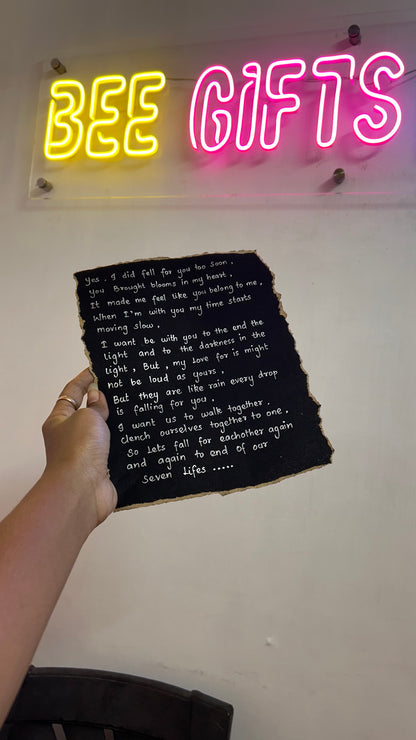 BEE GIFTS
Yes. I did fell for you too soon.
you Brought blooms in my heart.
It made me feel like you belong to me,
When I'm with you my time starts
moving slow.
I want be with you to the end the
light and to the darkness in the
light, But, my love for is might
not be loud as yours.
But they are like rain every drop
is falling for you.
I want us to walk together.
clench ourselves together to one.
So Lets fall for eachother again
and again to end of our
Seven Lifes .....